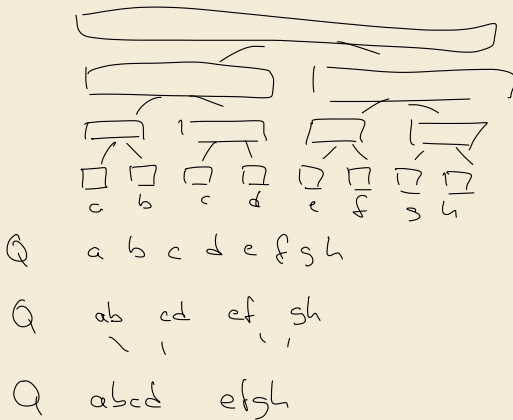 a b c d e f g h
Q a b c d e f g h
Q ab cd ef gh
Q abcd efgh